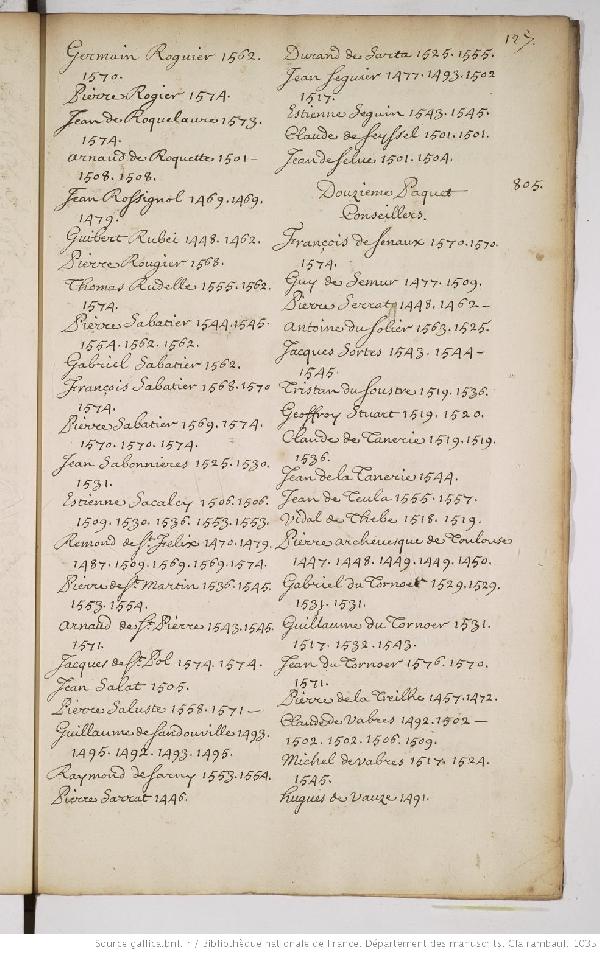 127.
Germain Roguier 1562.
1570.
Pierre Rogier 1574.
Jean de Roquelaure 1573.
1574.
Arnaud de Roquette 1501 –
1508. 1508.
Jean Rossignol 1469. 1469.
1479.
Guibert Rubei 1448. 1462.
Pierre Rougier 1568.
Thomas Rudelle 1555. 1562.
1574.
Pierre Sabatier 1544. 1545.
1554. 1562. 1562.
Gabriel Sabatier 1562.
François Sabatier 1568. 1570
1574.
Pierre Sabatier 1569. 1574.
1570. 1570. 1574.
Jean Sabonnieres 1525. 1530.
1531.
Estienne Sacaley 1506. 1506.
1509. 1530. 1536. 1553. 1553.
Remond de St. Felix 1470. 1479.
1487. 1509. 1569. 1569. 1574.
Pierre de St. Martin 1536. 1545.
1553. 1554.
Arnaud de St. Pierre 1543. 1545.
1571.
Jacques de St. Pol 1574. 1574.
Jean Salat 1505.
Pierre Saluste 1558. 1571 –
Guillaume de Sandouville 1493.
1495. 1492. 1493. 1495.
Raymond de Sarny 1553. 1554.
Pierre Sarrat 1446.
Durand de Sarta 1525. 1555.
Jean Seguier 1477. 1493. 1502
1517.
Estienne Seguin 1543. 1545.
Claude de Seyssel 1501. 1501.
Jean de Selue 1501. 1504.
Douzieme Paquet 805.
Conseillers.
François de Senaux 1570. 1570.
1574.
Guy de Semur 1477. 1509.
Pierre Serrat 1448. 1462 –
Antoine du Solier 1563. 1525.
Jacques Sortes 1543. 1544 –
1545.
Tristan du Soustre 1519. 1536.
Geoffroy Stuart 1519. 1520.
Claude de Tanerie 1519. 1519.
1536.
Jean de la Tanerie 1544.
Jean de Teula 1555. 1557.
Vidal de Thebe 1518. 1519.
Pierre archeuesque de Toulouse
1447. 1448. 1449. 1449. 1450.
Gabriel du Tornoer 1529. 1529.
1531. 1531.
Guillaume du Tornoer 1531.
1517. 1532. 1543.
Jean du Tornoer 1576. 1570.
1571.
Pierre de la Treilhe 1457. 1472.
Claude de Vabres 1492. 1502 –
1502. 1502. 1506. 1509.
Michel de Vabres 1517. 1524.
1545.
Hugues de Vauze 1491.
Source gallica.bnf.fr / Bibliothèque nationale de France. Département des manuscrits. Clairambault 1035